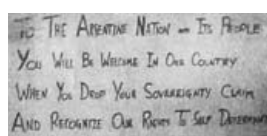 TO THE ARGENTINE NATION – ITS PEOPLE
YOU WILL BE WELCOME IN OUR COUNTRY
WHEN YOU DROP YOUR SOVEREIGNTY CLAIM
AND RECOGNIZE OUR RIGHTS TO SELF